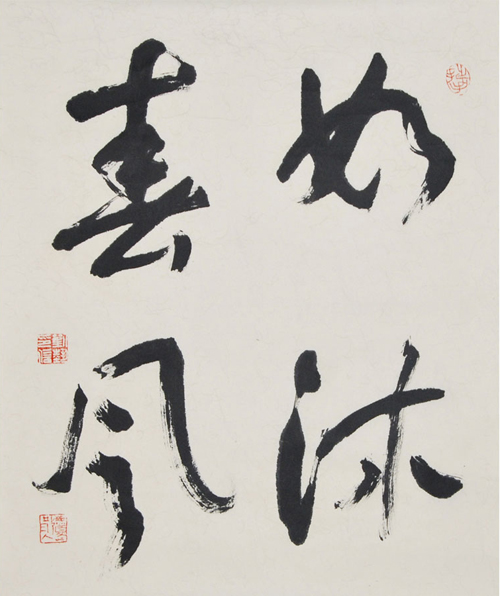 如沐
春风